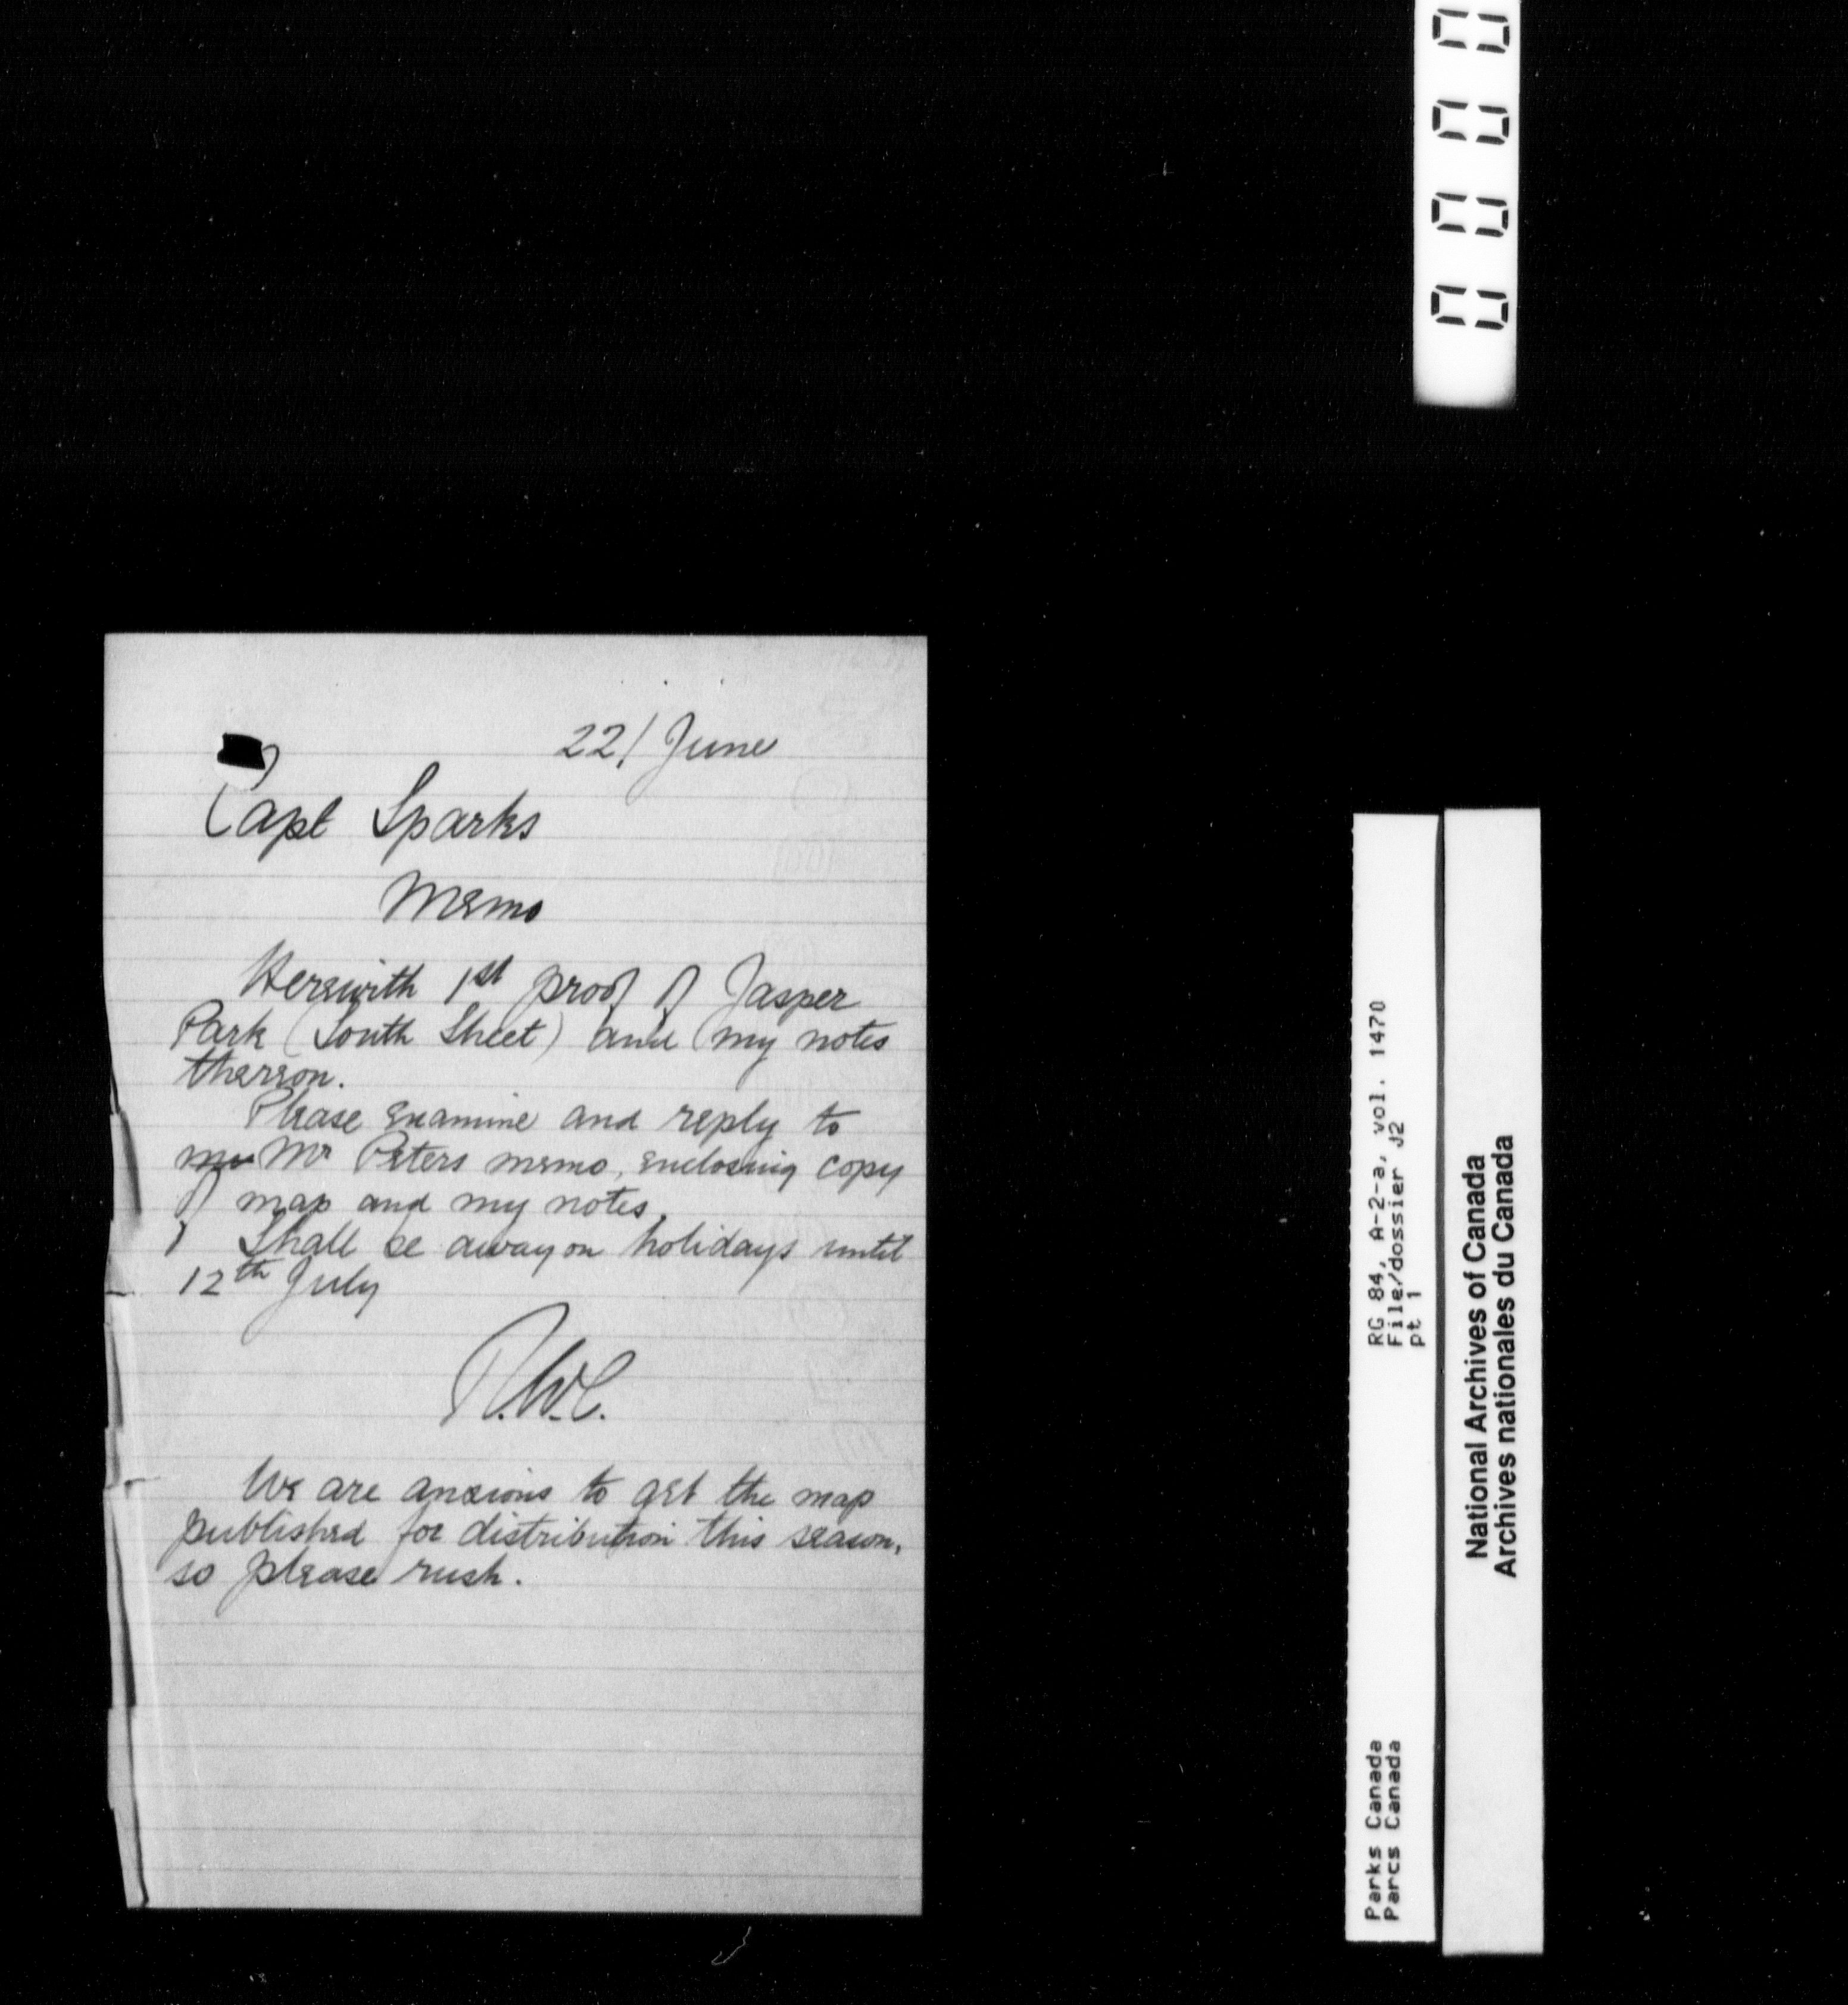 22/ June
Capt Sparks
Memo
Herewith 1st proof of Jasper
Park (South Sheet) and my notes
thereon.
Please examine and reply to
Mr Peters memo, enclosing copy
of map and my notes.
Shall be away on holidays until
12th July
R.W.C.
We are anxious to get the map
published for distribution this season,
so please rush.
0000
RG 84, A-2-a, vol. 1470
File/dossier J2
pt 1
Parks Canada
Parcs Canada
National Archives of Canada
Archives nationales du Canada